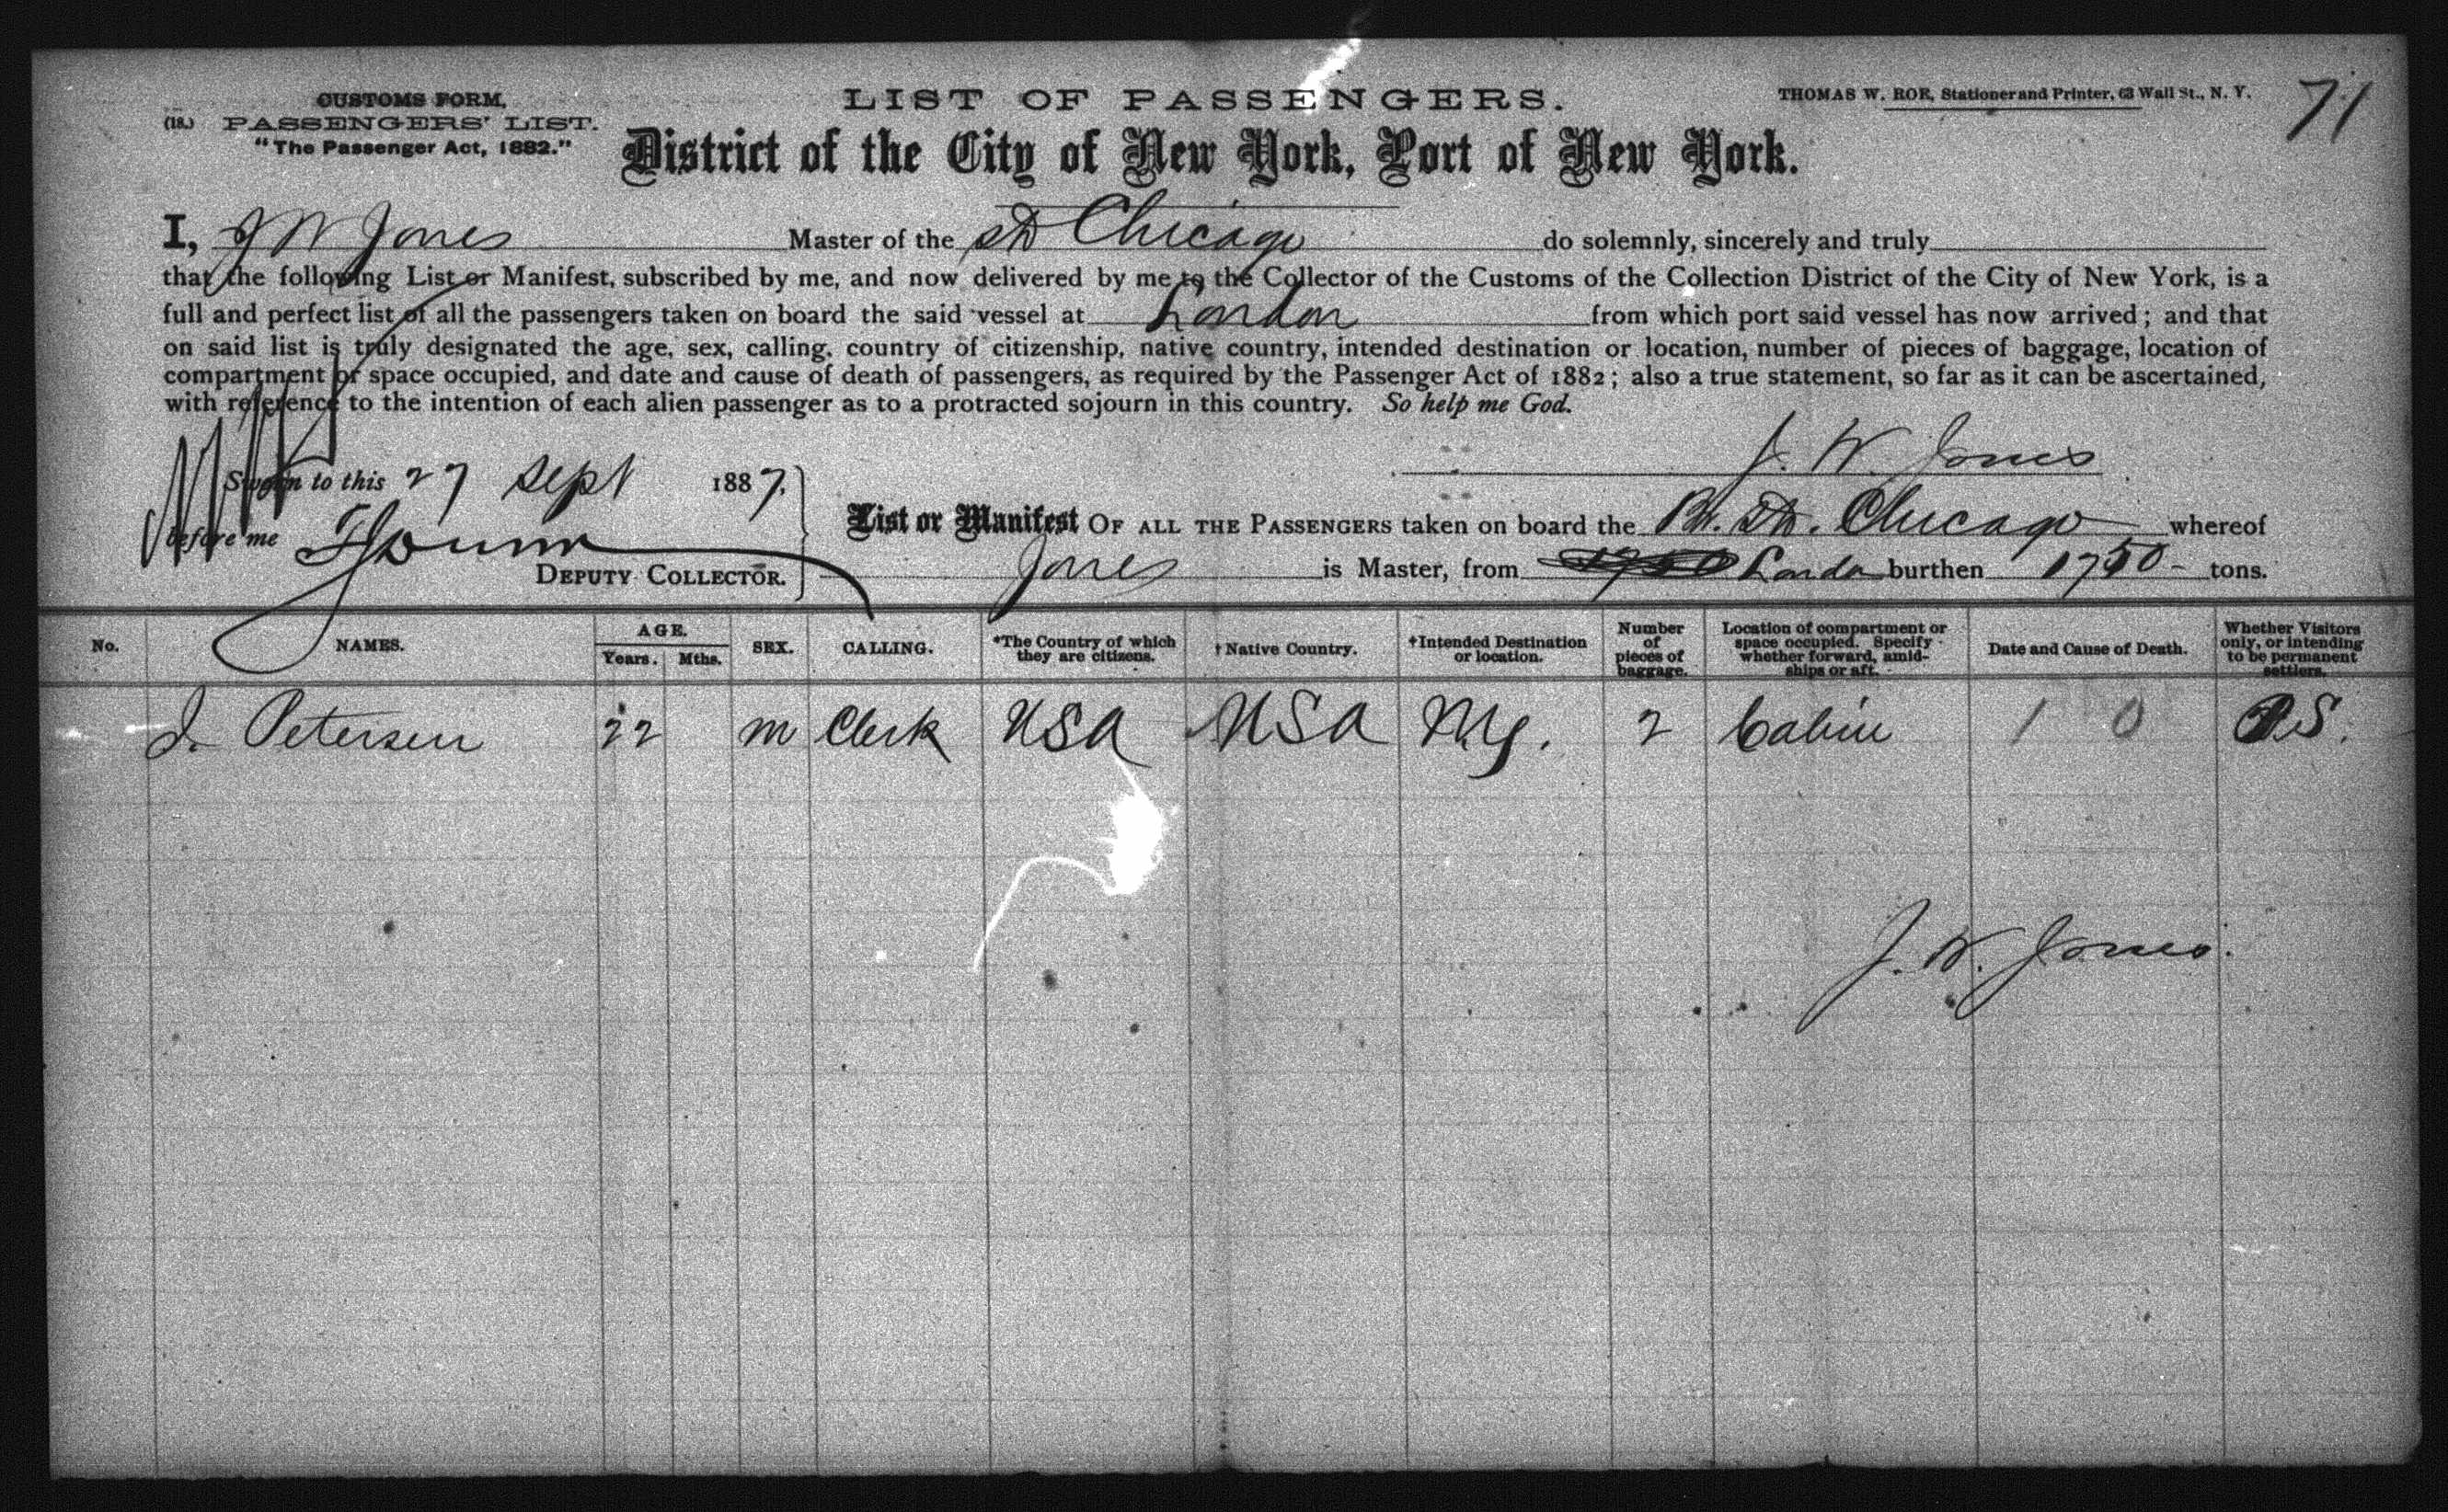 CUSTOMS FORM,
(18.) PASSENGERS' LIST.
"The Passenger Act, 1882."
LIST OF PASSENGERS.
THOMAS W. ROE, Stationer and Printer, 63 Wall St., N. Y.
71
District of the City of New York, Port of New York.
I, J W Jones Master of the SS Chicago do solemnly, sincerely and truly
that the following List or Manifest, subscribed by me, and now delivered by me to the Collector of the Customs of the Collection District of the City of New York, is a
full and perfect list of all the passengers taken on board the said vessel at London from which port said vessel has now arrived; and that
on said list is truly designated the age, sex, calling, country of citizenship, native country, intended destination or location, number of pieces of baggage, location of
compartment or space occupied, and date and cause of death of passengers, as required by the Passenger Act of 1882; also a true statement, so far as it can be ascertained,
with reference to the intention of each alien passenger as to a protracted sojourn in this country. So help me God.
J. W. Jones
Sworn to this 27 Sept 1887,
before me
DEPUTY COLLECTOR.
List or Manifest OF ALL THE PASSENGERS taken on board the Br. SS. Chicago whereof
Jones is Master, from London burthen 1750 - tons.
No. NAMES. AGE. Years. Mths. SEX. CALLING. *The Country of which they are citizens. †Native Country. †Intended Destination or location. Number of pieces of baggage. Location of compartment or space occupied. Specify whether forward, amidships or aft. Date and Cause of Death. Whether Visitors only, or intending to be permanent settlers.
J. Petersen 22 m Clerk USA USA N.Y. 2 Cabin 1 0 P.S.
J. W. Jones.